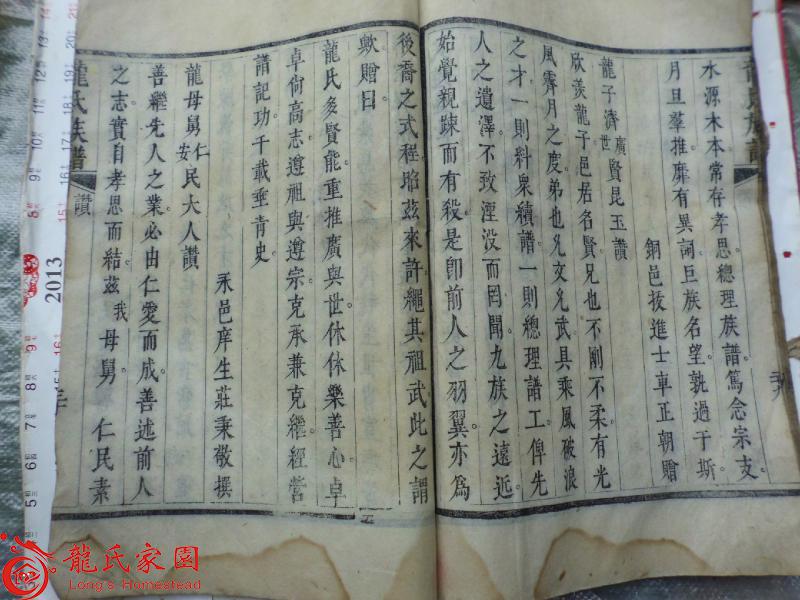 水源木本常存孝思總理族譜篤念宗支
月旦羣推靡有異詞巨族名望孰過于斯
銅邑拔進士車正朝贈
龍子濟廣世賢昆玉讚
欣羨龍子邑居名賢兄也不剛不柔有光
風霽月之度弟也允文允武具乘風破浪
之才一則料衆續譜一則總理譜工俾先
人之遺澤不致湮没而罔聞九族之遠近
始覺親踈而有殺是卽前人之羽翼亦爲
後裔之式程
茲來許繩其祖武此之謂
歟贈曰
龍氏多賢能重推廣與世休休樂善心卓
卓尙高志遵祖與遵宗克承兼克繼經營
譜記功千載垂青史
禾邑庠生莊秉敬撰
龍母舅仁安民大人讚
善繼先人之業必由仁愛而成善述前人
之志實自孝思而結茲我母舅仁民素
龍氏族譜
讚
2013
龍氏家園
Long's Homestead